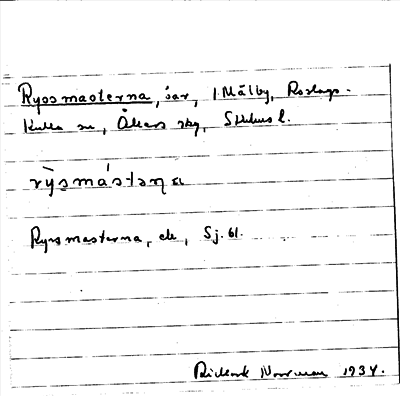 Ryssmasterna, øar, 1 Mälby, Roslags-
Kulla sn, Åkers skg, Sthlms l.
rỳsmástəṇa
Ryssmasterna, ö, Sj. 61.
Rickard Norrman 1934.